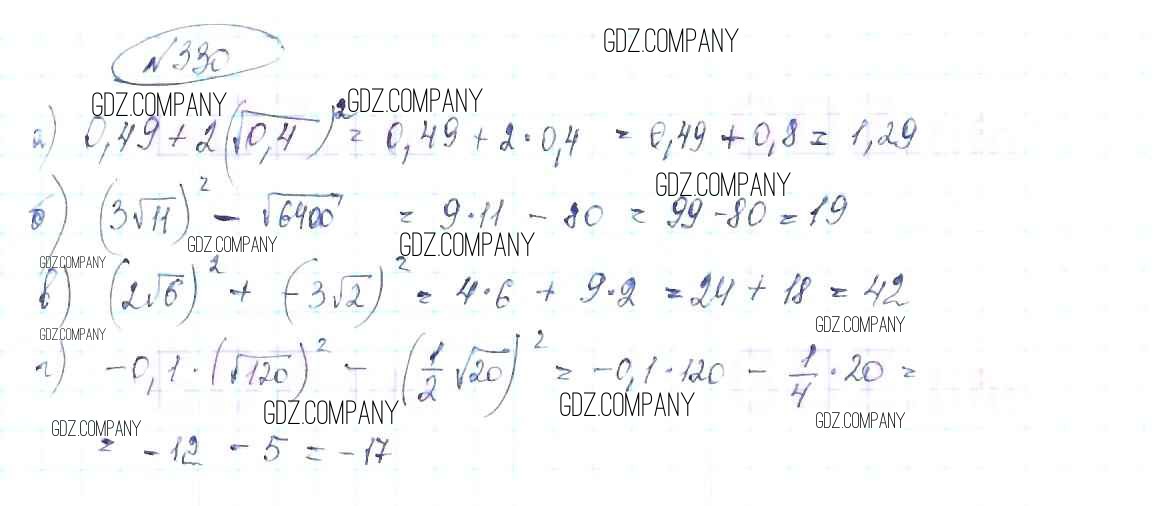 GDZ.COMPANY
№330
GDZ.COMPANY GDZ.COMPANY
а) 0,49 + 2(√0,4)² = 0,49 + 2·0,4 = 0,49 + 0,8 = 1,29
GDZ.COMPANY
б) (3√11)² - √6400 = 9·11 - 80 = 99 - 80 = 19
GDZ.COMPANY GDZ.COMPANY
GDZ.COMPANY
в) (2√6)² + (-3√2)² = 4·6 + 9·2 = 24 + 18 = 42
GDZ.COMPANY GDZ.COMPANY
г) -0,1·(√120)² - (1/2 √20)² = -0,1·120 - 1/4·20 =
GDZ.COMPANY GDZ.COMPANY GDZ.COMPANY
GDZ.COMPANY
= -12 - 5 = -17